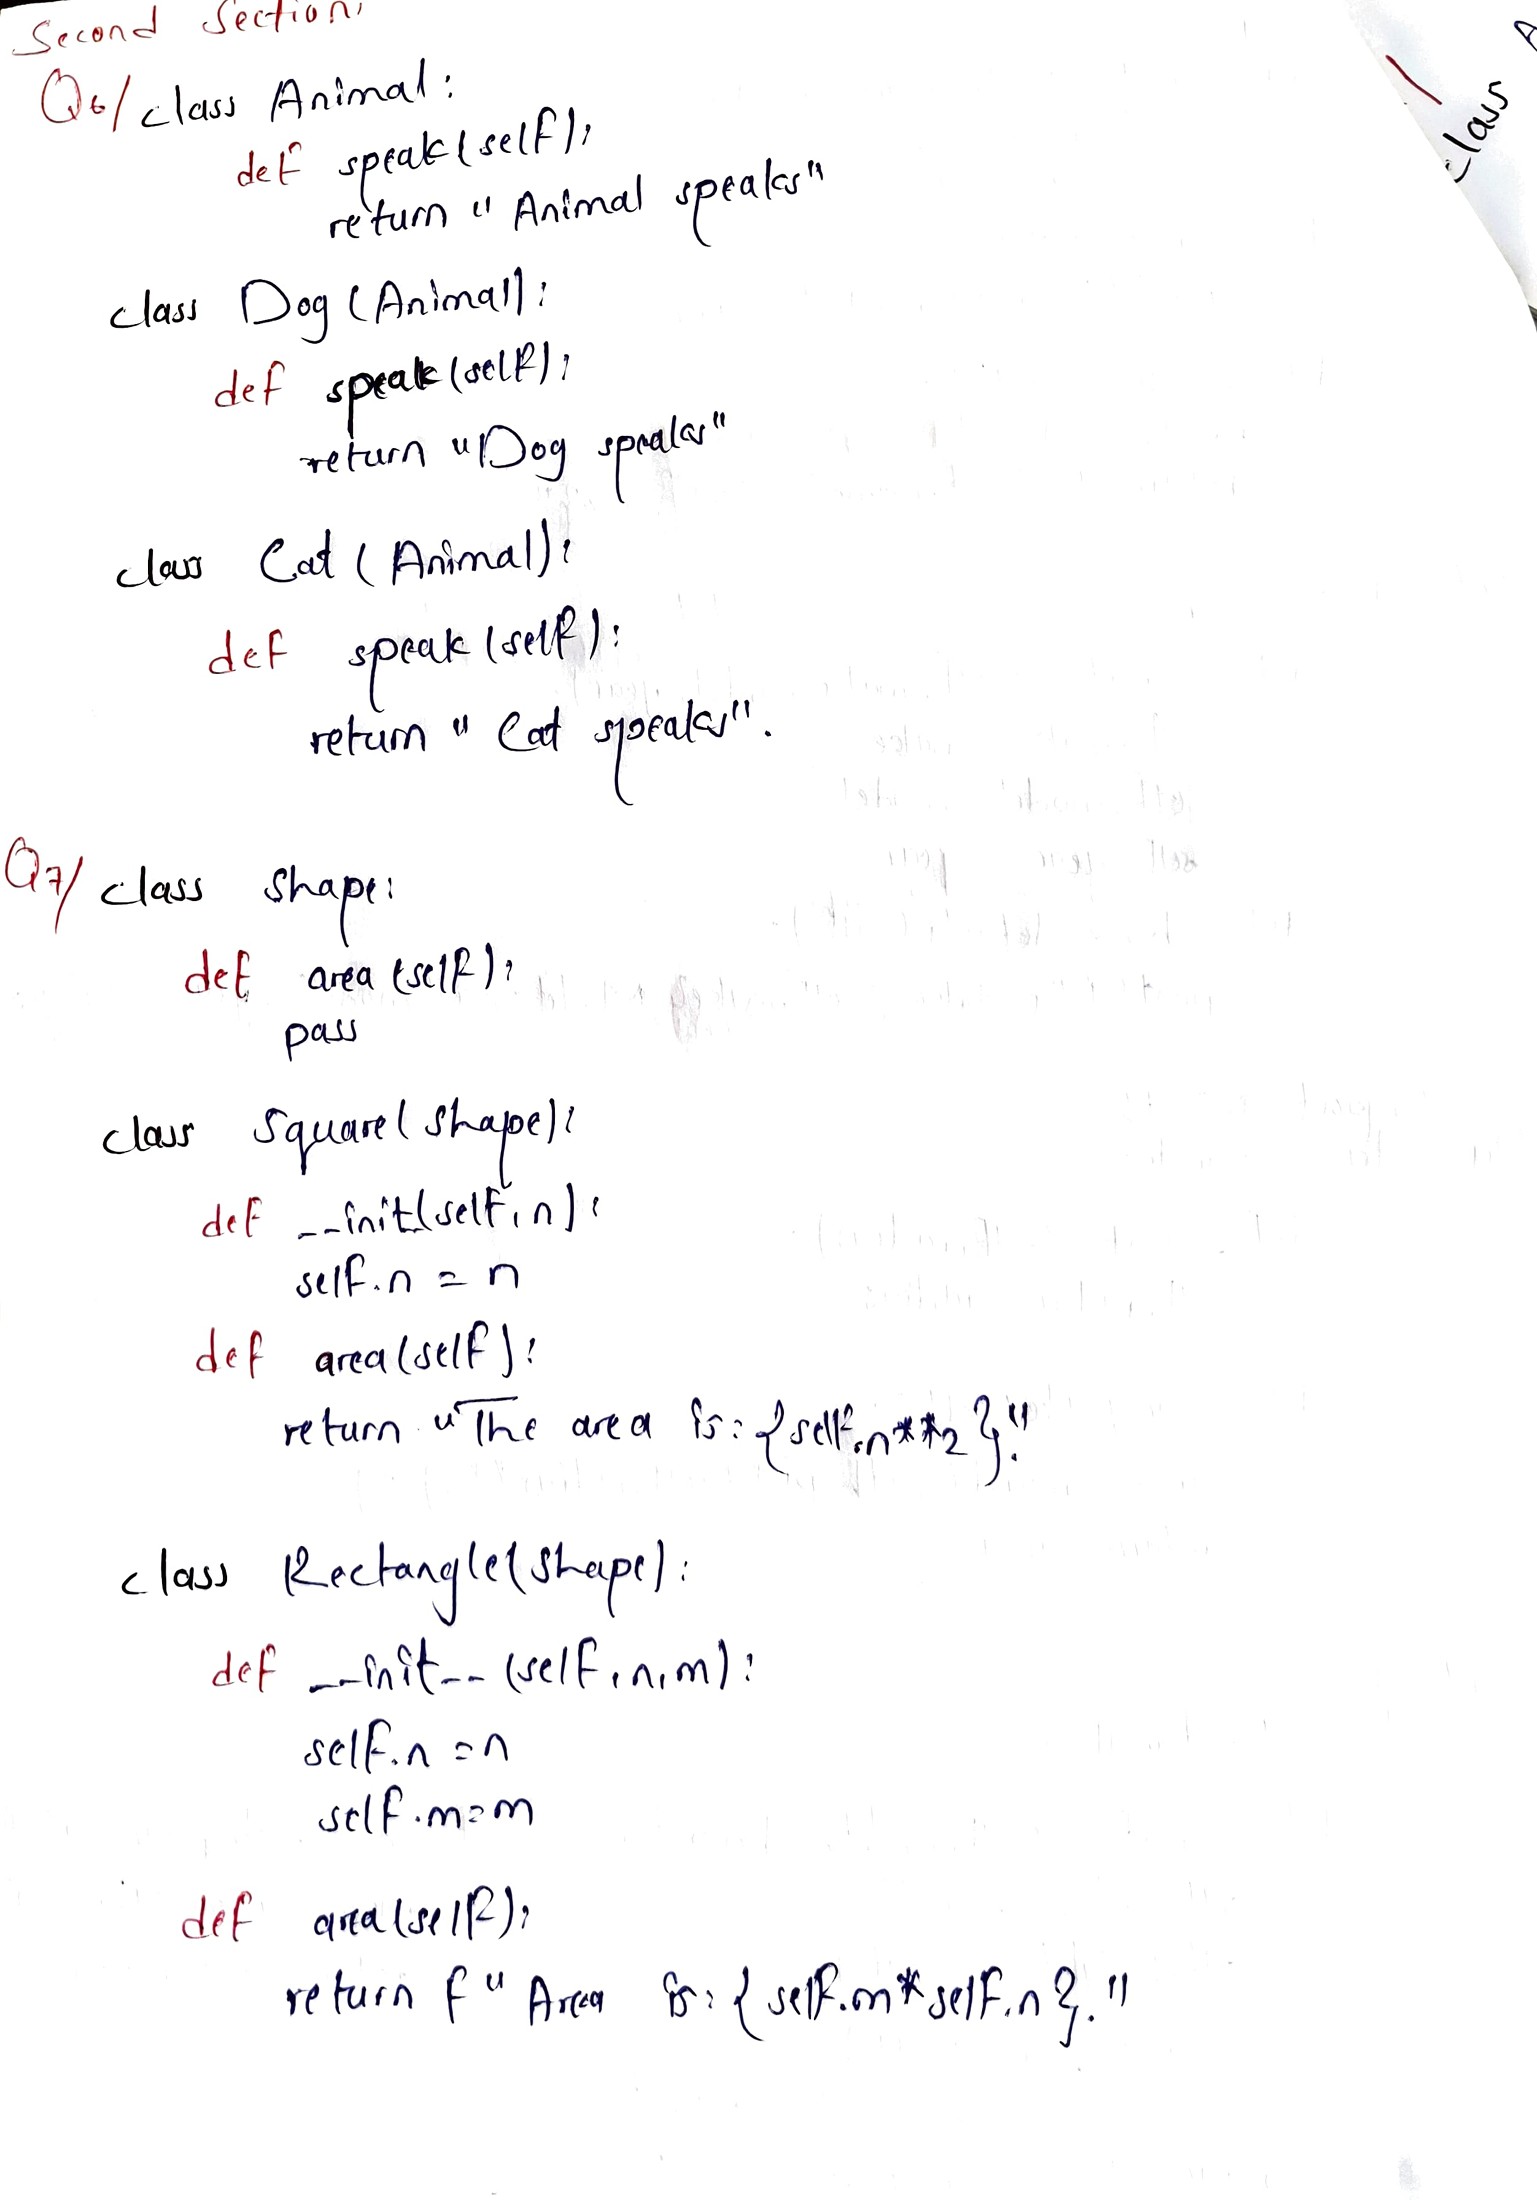 Second Section:
Q6/ class Animal:
def speak(self):
return "Animal speaks"
class Dog(Animal):
def speak(self):
return "Dog speaks"
class Cat(Animal):
def speak(self):
return "Cat speaks".
Q7/ class Shape:
def area(self):
pass
class Square(Shape):
def __init(self,n):
self.n = n
def area(self):
return "The area is: {self.n**2}."
class Rectangle(Shape):
def __init__(self,n,m):
self.n = n
self.m=m
def area(self):
return f"Area is: {self.m*self.n}."
class